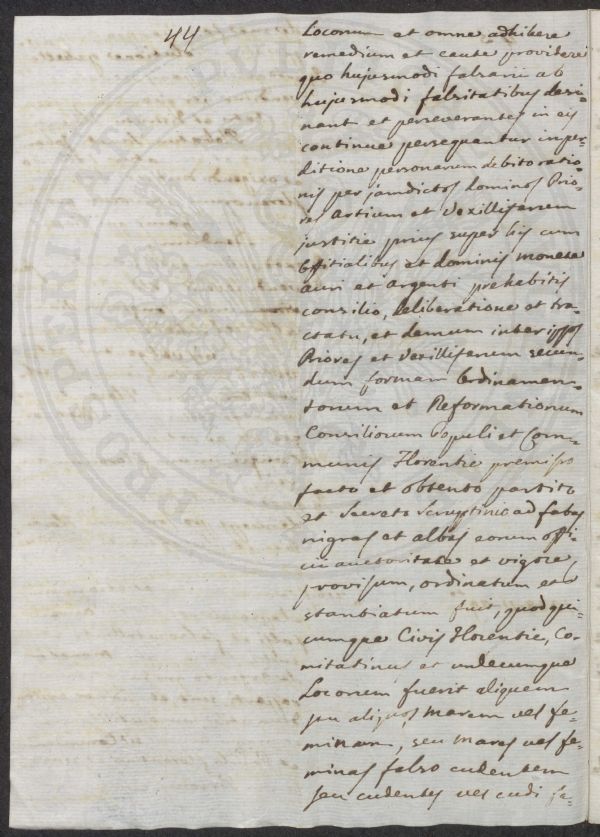 44
Locorum et omne adhibere
remedium et caute provideri
quo hujusmodi falsarii ab
hujusmodi falsitatibus desi-
nant et perseverantes in eis
continue persequantur in per-
ditione personarum debito ratio-
nis per jamdictos dominos Prio-
res Artium et Vexilliferum
justitie prius super his cum
Offitialibus et dominis monete
auri et argenti prehabitis
consilio, deliberatione et tra-
ctatu, et demum inter ipsos
Priores et Vexilliferum secun-
dum formam Ordinamen-
torum et Reformationum
Consiliorum Populi et Com-
munis Florentie premisso
facto et obtento partito
et Secreto Scruptinio ad fabas
nigras et albas eorum offi-
cii auctoritate et vigore,
provisum, ordinatum et
stantiatum fuit, quod qui-
cumque Civis Florentie, Co-
mitatinus et undecumque
Locorum fuerit aliquem
seu aliquos marem vel fe-
minam, seu mares vel fe-
minas falso cudentem
seu cudentes vel cudi fa-
PROSPERITAT PUB